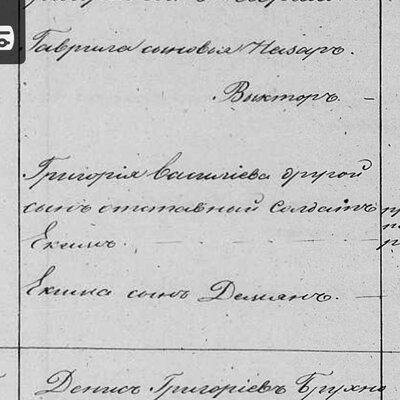 Гаврила сыновья Назаръ.
Викторъ. —
Григорія Василіева другой
сынъ отставный Солдатъ
Екимъ.
Екима сынъ Демянъ. —
Денисъ Григоріевъ Брухно